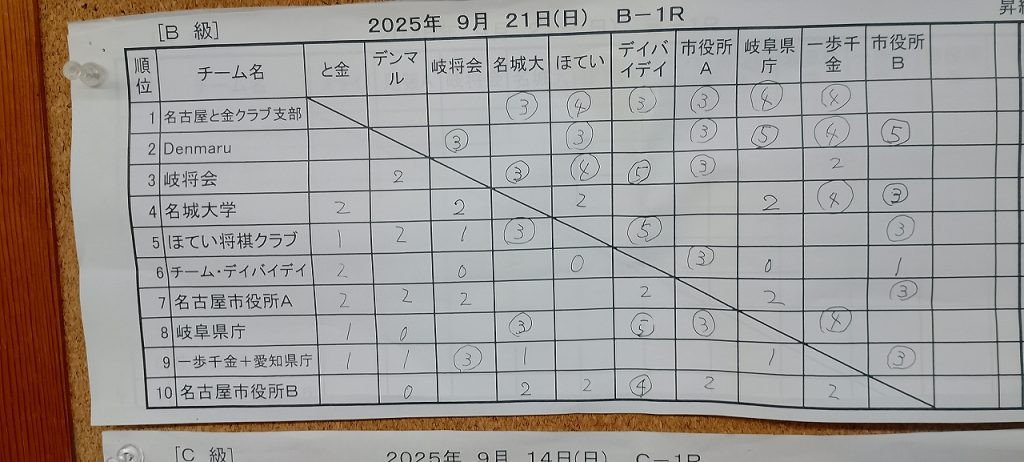 [B 級] 2025年 9月 21日(日) B－1R 昇級
順位 チーム名 と金 デンマル 岐将会 名城大 ほてい デイバイデイ 市役所A 岐阜県庁 一歩千金 市役所B
1 名古屋と金クラブ支部 ③ ④ ③ ③ ④ ④
2 Denmaru ③ ③ ③ ⑤ ④ ⑤
3 岐将会 2 ③ ④ ⑤ ③ 2
4 名城大学 2 2 2 2 ④ ③
5 ほてい将棋クラブ 1 2 1 ③ ⑤ ③
6 チーム・デイバイデイ 2 0 0 ③ 0 1
7 名古屋市役所A 2 2 2 2 2 ③
8 岐阜県庁 1 0 ③ ⑤ ③ ④
9 一歩千金＋愛知県庁 1 1 ③ 1 1 ③
10 名古屋市役所B 0 2 2 ④ 2 2
[C 級] 2025年 9月 14日(日) C－1R